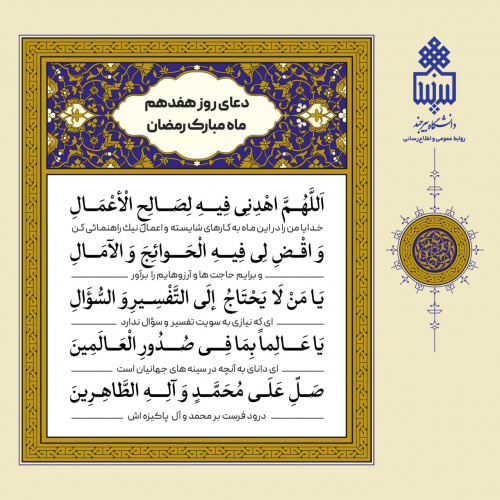 دعای روز هفدهم
ماه مبارک رمضان
اَللَّهُمَّ اهْدِنِی فِیهِ لِصَالِحِ الْأَعْمَالِ
خدایا من را در این ماه به کارهای شایسته و اعمال نیک راهنمائی کن
وَ اقْضِ لِی فِیهِ الْحَوَائِجَ وَ الْآمَالِ
و برایم حاجت ها و آرزوهایم را برآور
یَا مَنْ لَا یَحْتَاجُ إِلَی التَّفْسِیرِ وَ السُّؤَالِ
ای که نیازی به سویت تفسیر و سؤال ندارد
یَا عَالِماً بِمَا فِی صُدُورِ الْعَالَمِینَ
ای دانای به آنچه در سینه های جهانیان است
صَلِّ عَلَی مُحَمَّدٍ وَ آلِهِ الطَّاهِرِینَ
درود فرست بر محمد و آل پاکیزه اش
دانشگاه بیرجند
روابط عمومی و اطلاع‌رسانی